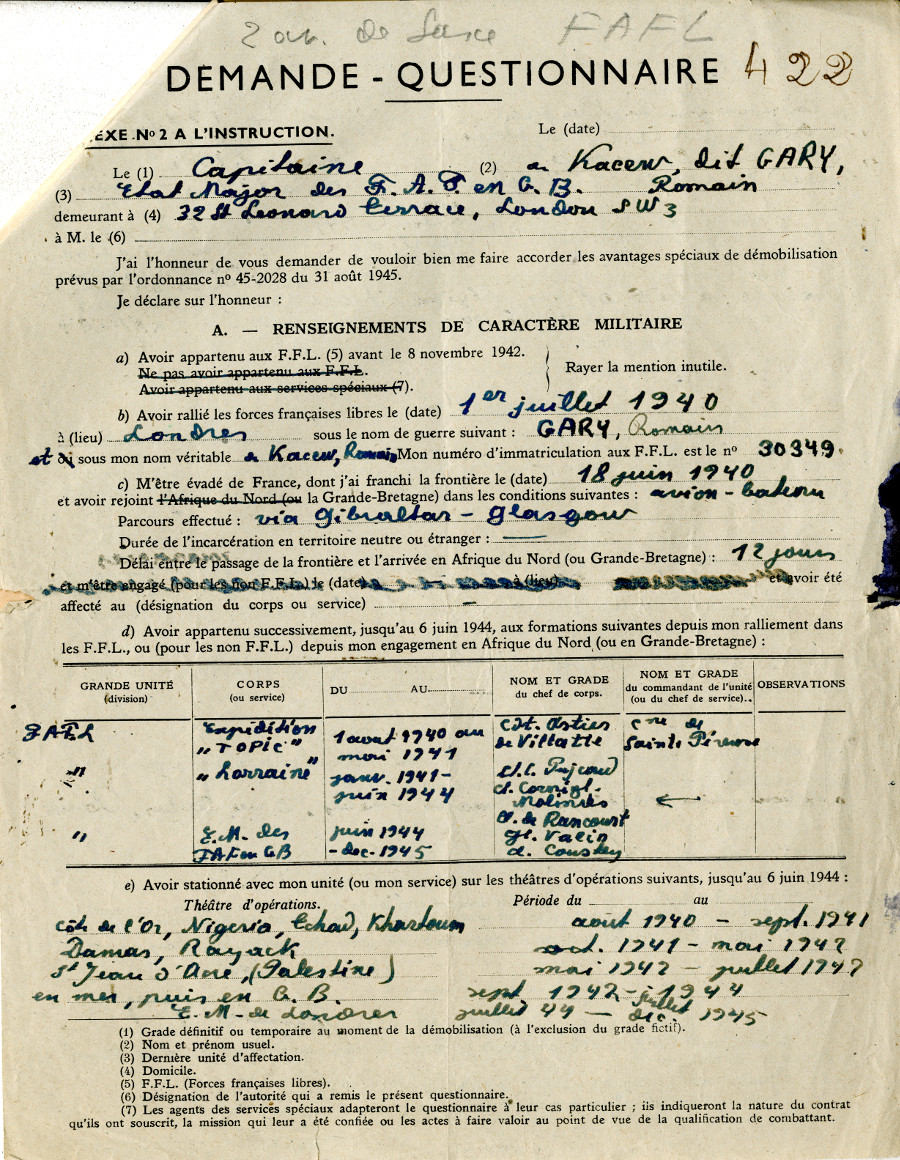 2 av. de Saxe FAFL
DEMANDE - QUESTIONNAIRE 422
EXE Nº 2 A L'INSTRUCTION.
Le (date)
Le (1) Capitaine (2) Kacew, dit GARY,
(3) Etat Major des F. A. F en G. B. Romain
demeurant à (4) 32 St Leonard Terrace, London SW3
à M. le (6)
J'ai l'honneur de vous demander de vouloir bien me faire accorder les avantages spéciaux de démobilisation
prévus par l'ordonnance nº 45-2028 du 31 août 1945.
Je déclare sur l'honneur :
A. — RENSEIGNEMENTS DE CARACTÈRE MILITAIRE
a) Avoir appartenu aux F.F.L. (5) avant le 8 novembre 1942.
Ne pas avoir appartenu aux F.F.L.
Rayer la mention inutile.
Avoir appartenu aux services spéciaux (7).
b) Avoir rallié les forces françaises libres le (date) 1er juillet 1940
à (lieu) Londres sous le nom de guerre suivant : GARY, Romain
et ou sous mon nom véritable Kacew, Romain Mon numéro d'immatriculation aux F.F.L. est le nº 30349.
c) M'être évadé de France, dont j'ai franchi la frontière le (date) 18 juin 1940
et avoir rejoint l'Afrique du Nord (ou la Grande-Bretagne) dans les conditions suivantes : avion - bateau
Parcours effectué : via Gibraltar - Glasgow
Durée de l'incarcération en territoire neutre ou étranger : —
Délai entre le passage de la frontière et l'arrivée en Afrique du Nord (ou Grande-Bretagne) : 12 jours
et m'être engagé (pour les non F.F.L.) le (date) à (lieu) et avoir été
affecté au (désignation du corps ou service) —
d) Avoir appartenu successivement, jusqu'au 6 juin 1944, aux formations suivantes depuis mon ralliement dans
les F.F.L., ou (pour les non F.F.L.) depuis mon engagement en Afrique du Nord (ou en Grande-Bretagne) :
GRANDE UNITÉ (division) CORPS (ou service) DU AU NOM ET GRADE du chef de corps. NOM ET GRADE du commandant de l'unité (ou du chef de service). OBSERVATIONS
FAFL Expédition 1 aout 1940 au Cdt. Astier Cne de
"TOPIC" mai 1941 de Villatte Sainte Péreuse
" "Lorraine" janv. 1941- Pijeaud
juin 1944 Corniglion-
Molinier
de Rancourt
" E.M. des juin 1944 gl. Valin
FAF en GB -dec. 1945 Coustey
e) Avoir stationné avec mon unité (ou mon service) sur les théâtres d'opérations suivants, jusqu'au 6 juin 1944 :
Théâtre d'opérations. Période du au
Côte de l'Or, Nigeria, Tchad, Khartoum aout 1940 - sept. 1941
Damas, Rayack oct. 1941 - mai 1942
St Jean d'Acre, (Palestine) mai 1942 - juillet 1942
en mer, puis en G. B. sept 1942 - juillet 1944
E. M. de Londres juillet 44 — dec. 1945
(1) Grade définitif ou temporaire au moment de la démobilisation (à l'exclusion du grade fictif).
(2) Nom et prénom usuel.
(3) Dernière unité d'affectation.
(4) Domicile.
(5) F.F.L. (Forces françaises libres).
(6) Désignation de l'autorité qui a remis le présent questionnaire.
(7) Les agents des services spéciaux adapteront le questionnaire à leur cas particulier ; ils indiqueront la nature du contrat
qu'ils ont souscrit, la mission qui leur a été confiée ou les actes à faire valoir au point de vue de la qualification de combattant.